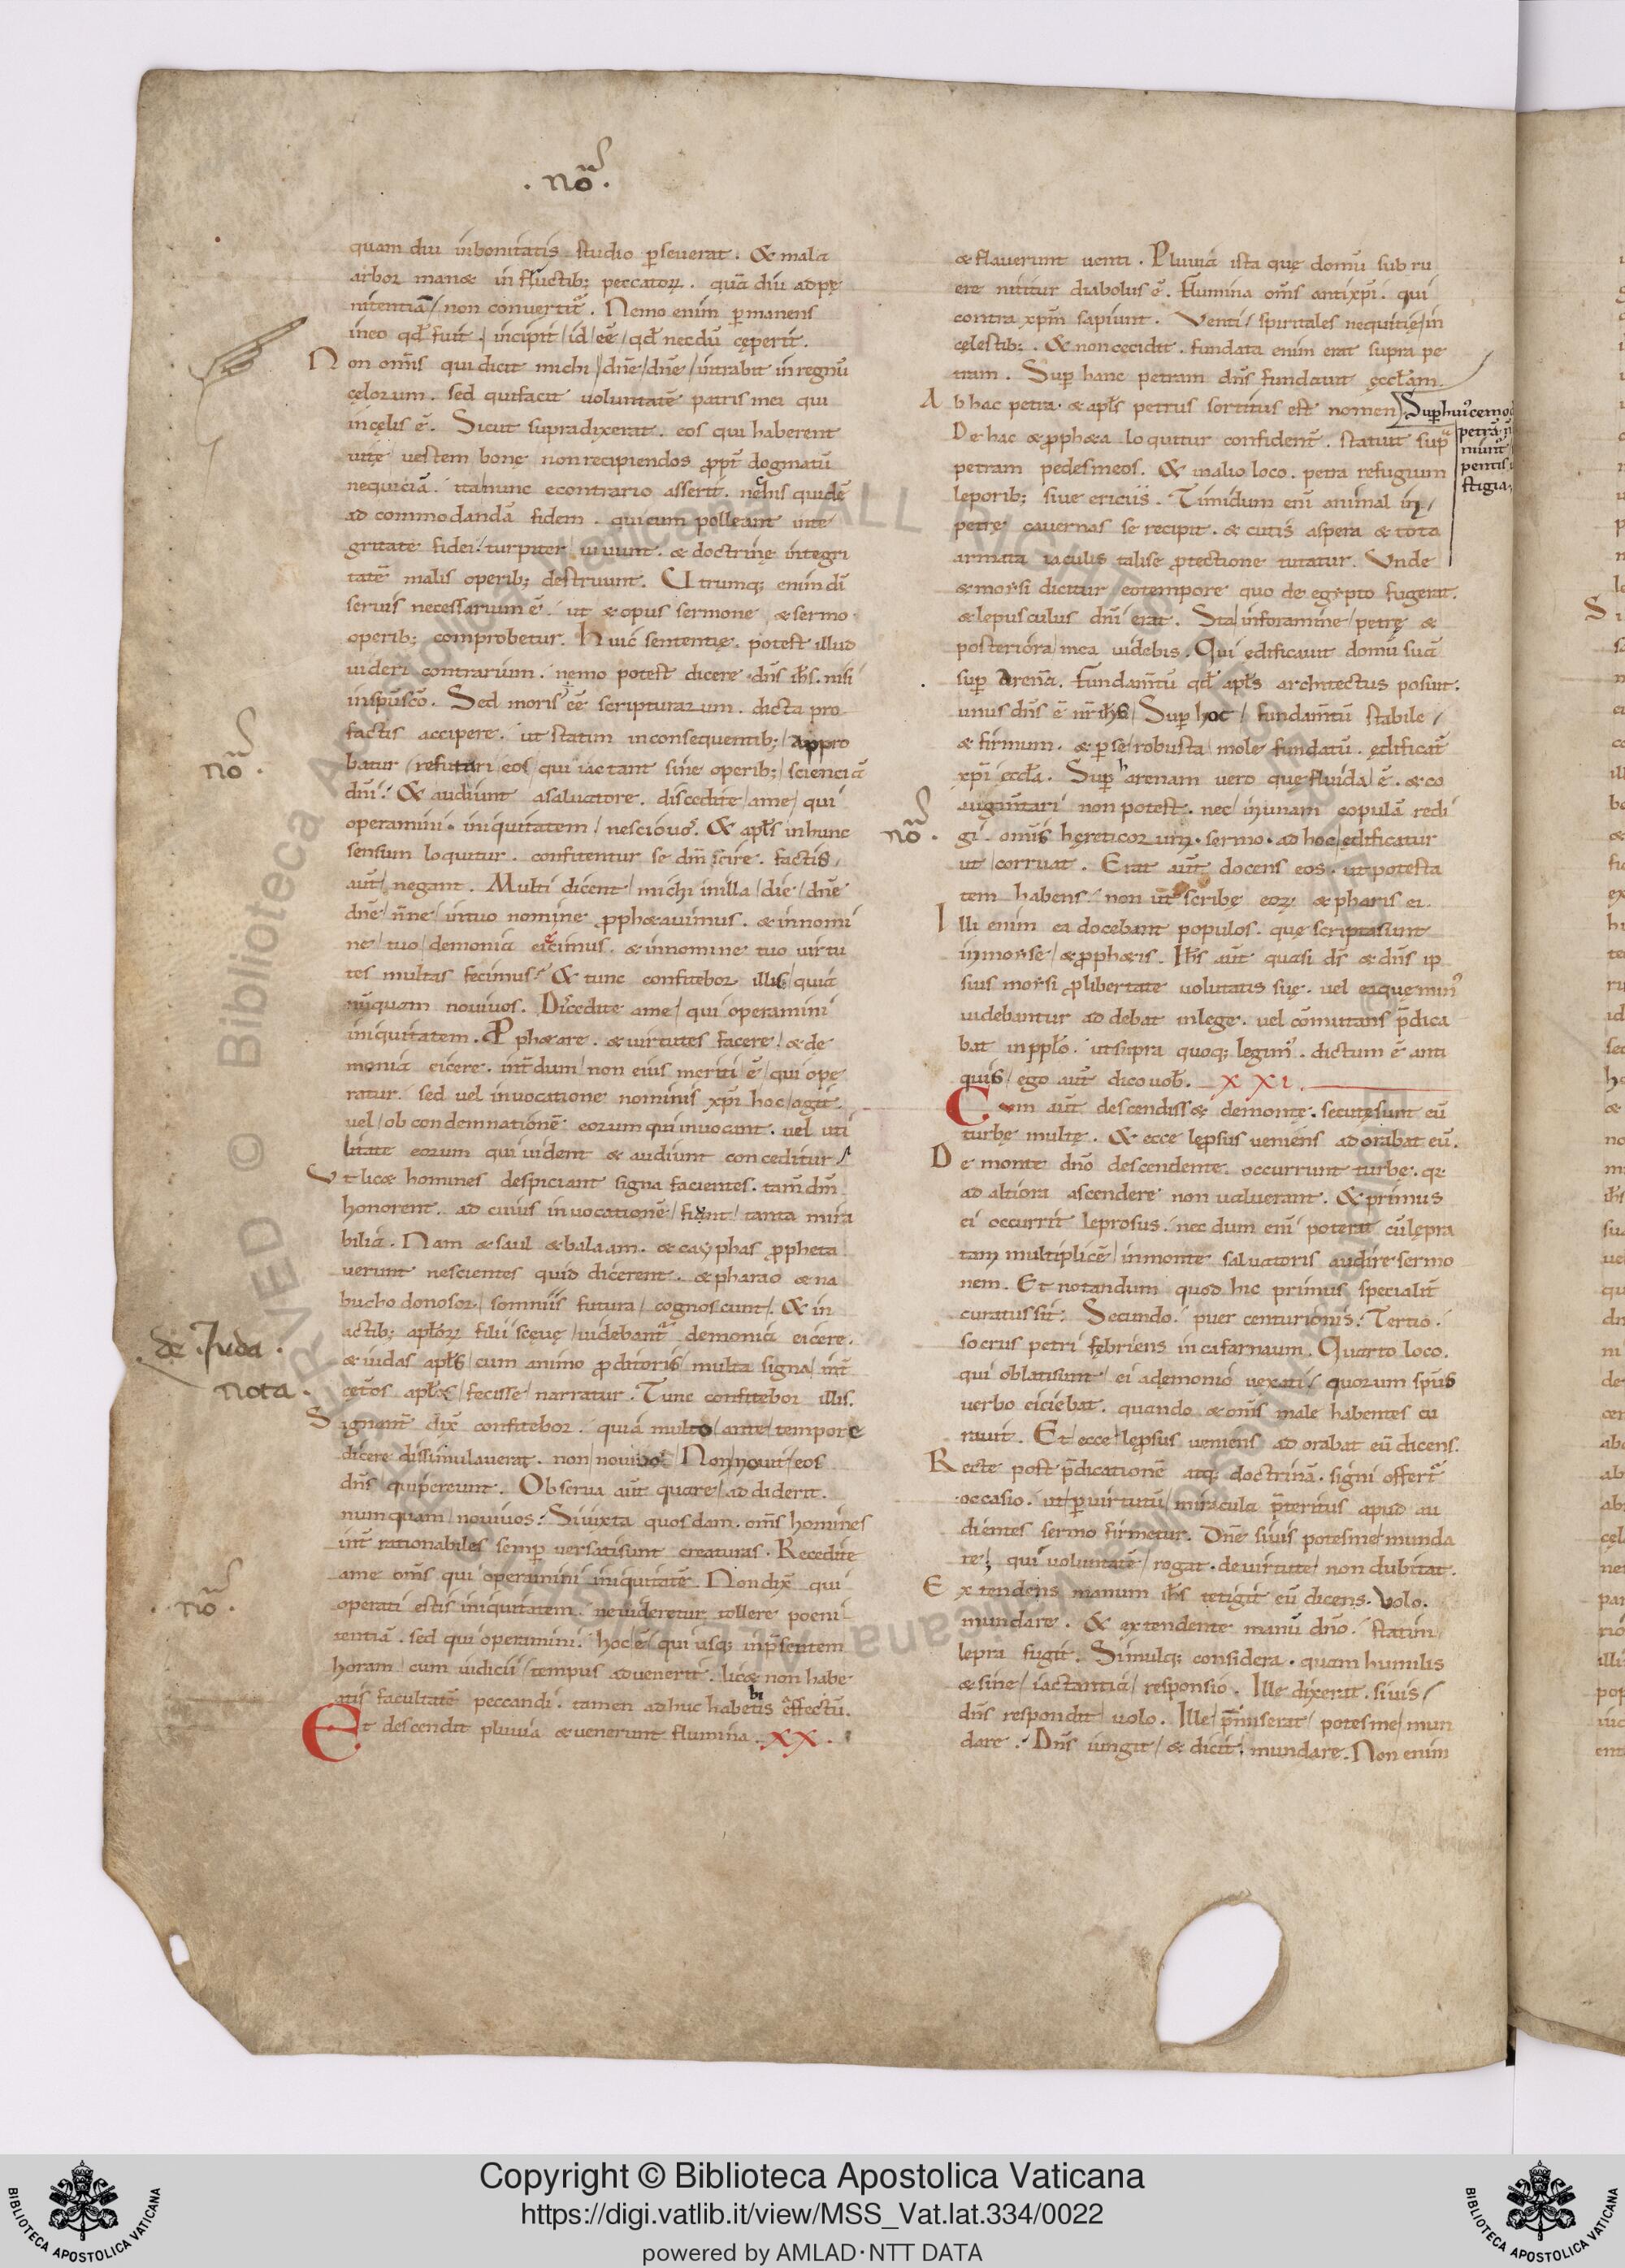 .nōᷤ.
quam diu inbonitatis studio ꝑseuerat. & mala
arbor manæ in fructib; peccatoꝝ. quā diu adpę
nitentiā / non conuertit᷒. Nemo enim ꝑmanens
ineo qđ fuit. / incipit / id / eē / qđ necdū cęperit.
Non om̄s qui dicit michi / dn̄e / dn̄e / intrabit inregnū
cęlorum. sed quifacit voluntatē patris mei qui
incęlis ē. Sicut supradixerat. eos qui haberent
uitę uestem bonę nonrecipiendos ꝓpt̄ dogmatū
nequiciā. ita / nunc econtrario asserit. nehis quidē
ad commodandā fidem. quicum polleant inte
gritate fidei. turpiter uiuunt. & doctrinę integri
tatē malis operib; destruunt. Utrumq; enim dī
seruis necessarium ē. ut & opus sermone & sermo
operib; comprobetur. Huic sententię. potest illud
uideri contrarium. nemo potest dicere dn̄s ih̄s. nisi
insp̄uscō. Sed moris ēē scripturarum. dicta pro
factis accipere. ut statim inconsequentib; / appro
batur / refutari / eos / qui iactant sine operib; / scienciā
dn̄i. & audiunt asaluatore. discedite / ame / qui
operamini. iniquitatem / nesciouos. & apl̄s inhunc
sensum loquitur. confitentur se dm̄ scire. factis /
aut̄ / negant. Multi dicent / michi inilla / die / dn̄e
dn̄e / n̄ne / intuo nomine ꝓph&auimus. & innomi
ne / tuo / demonia eiecimus. & innomine tuo uirtu
tes multas fecimus. & tunc confitebor illis / quia
nūquam nouiuos. Discedite ame / qui operamini
iniquitatem. Ꝓph&are. & uirtutes facere / & de
monia eicere. int̄dum / non eius meriti ē / qui opę
ratur. sed vel inuocatione nominis xp̄i hoc / agit.
uel / ob condemnationē eorum qui inuocant. uel uti
litate eorum qui uident & audiunt conceditur
Ut lic& homines despiciant signa facientes. tam̄ dm̄
honorent. ad cuius inuocationē / fiunt / tanta mira
bilia. Nam & saul & balaam. & cayphas ꝓpheta
uerunt nescientes quid dicerent. & pharao & na
buchodonosor / somniis futura / cognoscunt. & in
actib; apl̄oꝝ filii scęuę / uidebant᷒ demonia eicere.
de Iuda.
nota.
& iudas apl̄s / cum animo ꝓditoris / multa signa / int̄
cęt̄os apl̄os / fecisse / narratur. Tunc confitebor illis.
Signant̄ dix̄ confitebor. quia multo / ante / tempore
dicere dissimulauerat. non / nouiuos. Non / nouit / eos
dn̄s quipereunt. Obserua aut̄ quare / addiderit.
nunquam / nouiuos. Siiuxta quosdam. om̄s homines
int̄ rationabiles semꝑ uersatisunt creaturas. Recedite
ame om̄s qui operamini iniquitatē. Nondix̄ qui
operati estis iniquitatem. neuideretur tollere poeni
tentiā. sed qui operamini. hoc / ē / qui usq; inp̄sentem
horam / cum iudicii / tempus aduenerit. lic& non habe
atis facultatē peccandi. tamen adhuc habetis effectū.
Et descendit pluuia & uenerunt flumina. XX.
& flauerunt uenti. Pluuia ista quę domū subru
ere nititur diabolus ē. Flumina om̄s antixp̄i. qui
contra xp̄m sapiunt. Venti / spiritales nequitię / in
cęlestib;. & noncecidit. fundata enim erat supra pe
tram. Suꝑ hanc petram dn̄s fundauit ęccl̄am.
Ab hac petra. & apl̄s petrus sortitus est nomen
De hac & ꝓph&a loquitur confident̄. statuit sup̄
petram pedesmeos. & inalio loco. petra refugium
leporib; siue ericiis. Timidum eni animal in /
petrę cauernas se recipit. & cutis aspera & tota
armata iaculis talise ꝓtectione tutatur. Unde
& moysi dicitur eotempore quo de egypto fugerat.
& lepusculus dn̄i erat. Sta / inforamine / petrę &
posteriora / mea uidebis. Qui edificauit domū suā
suꝑ arenā. Fundam̄tū qđ apl̄s architectus posuit.
unus dn̄s ē nr̄ ih̄s / Suꝑ hoc / fundam̄tū stabile /
& firmum. & ꝑse / robusta / mole fundatū. ędificat᷒
xp̄i eccl̄a. Suꝑ arenam uero quę fluida / ē. & co
augm̄tari non potest. nec / inunam copulā redi
gi. om̄is hęreticorum. sermo. ad hoc / ędificatur
ut / corruat. Erat aut̄ docens eos. ut potesta
tem habens. non ut scribę eoꝝ & pharisei.
Illi enim ea docebant populos. quę scriptasunt
inmoyse / & ꝓph&is. Ih̄s aut̄ quasi ds̄ & dn̄s ip
sius moysi ꝓlibertate uolutatis suę. uel eaquęmin᷒
uidebantur addebat inlege. uel cōmutans p̄dica
bat inpp̄lo. utsupra quoq; legim᷒. dictum ē anti
quis / ego aut̄ dico uob̄. XXI.
Cum aut̄ descendiss& demonte. secutęsunt eū
turbę multę. & ecce lęprsus ueniens adorabat eū.
De monte dn̄o descendente. occurrunt turbę. q̄
ad altiora ascendere non ualuerant. & primus
ei occurrit leprosus. necdum eni poterat cūlepra
tam multiplicē / inmonte saluatoris audire sermo
nem. Et notandum quod hic primus specialit̄
curatussit. Secundo. puer centurionis. Tertio.
socrus petri fębriens incafarnaum. Quarto loco.
qui oblatisunt / ei ademonio uexati / quorum sp̄us
uerbo eiciebat. quando & om̄s male habentes cu
rauit. Et / ecce / lęprsus ueniens adorabat eū dicens.
Recte post p̄dicationē atq; doctrinā. signi offert᷒
occasio. ut / ꝑuirtutū / miracula p̄teritus apud au
dientes sermo firmetur. Dn̄e siuis potesme munda
re; qui uoluntatē / rogat. deuirtute / non dubitat.
Extendens manum ih̄s tetigit eū dicens. Volo.
mundare. & extendente manū dn̄o. statim
lepra fugit. Simulq; considera. quam humilis
& sine / iactantia / responsio. Ille dixerat. siuis /
dn̄s respondit / uolo. Ille / p̄miserat / potesme / mun
dare. Dn̄s iungit / & dicit. mundare. Non enim
nōᷤ.
nōᷤ.
nōᷤ.
Copyright © Biblioteca Apostolica Vaticana
https://digi.vatlib.it/view/MSS_Vat.lat.334/0022
powered by AMLAD·NTT DATA
BIBLIOTECA APOSTOLICA VATICANA
BIBLIOTECA APOSTOLICA VATICANA